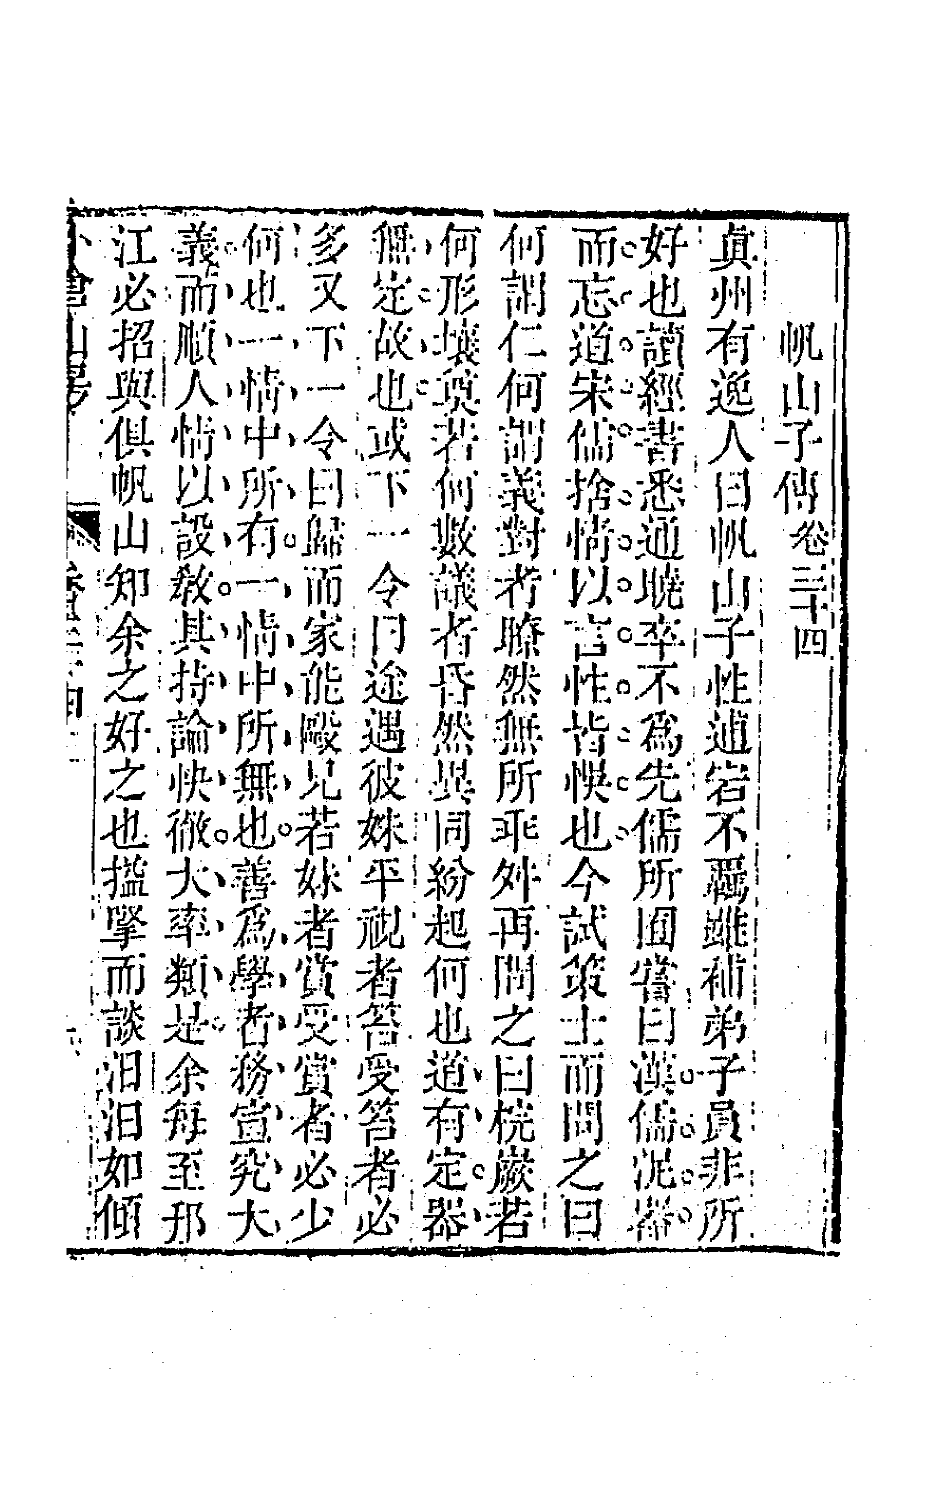 帆山子傳卷三十四
真州有逸人曰帆山子性逋宕不羈雖補弟子員非所
好也讀經書悉通曉卒不爲先儒所囿嘗曰漢儒泥器
而忘道宋儒捨情以言性皆悞也今試策士而問之曰
何謂仁何謂義對者瞭然無所乖舛再問之曰梡嶡若
何形壤奠若何數議者昏然異同紛起何也道有定器
無定故也或下一令曰途遇彼姝平視者笞受笞者必
多又下一令曰歸而家能毆兄若妹者賞受賞者必少
何也一情中所有一情中所無也善爲學者務宣究大
義而順人情以設教其持論快徹大率類是余每至邗
江必招與俱帆山知余之好之也搤擥而談汩汩如傾
小倉山房 卷三十四